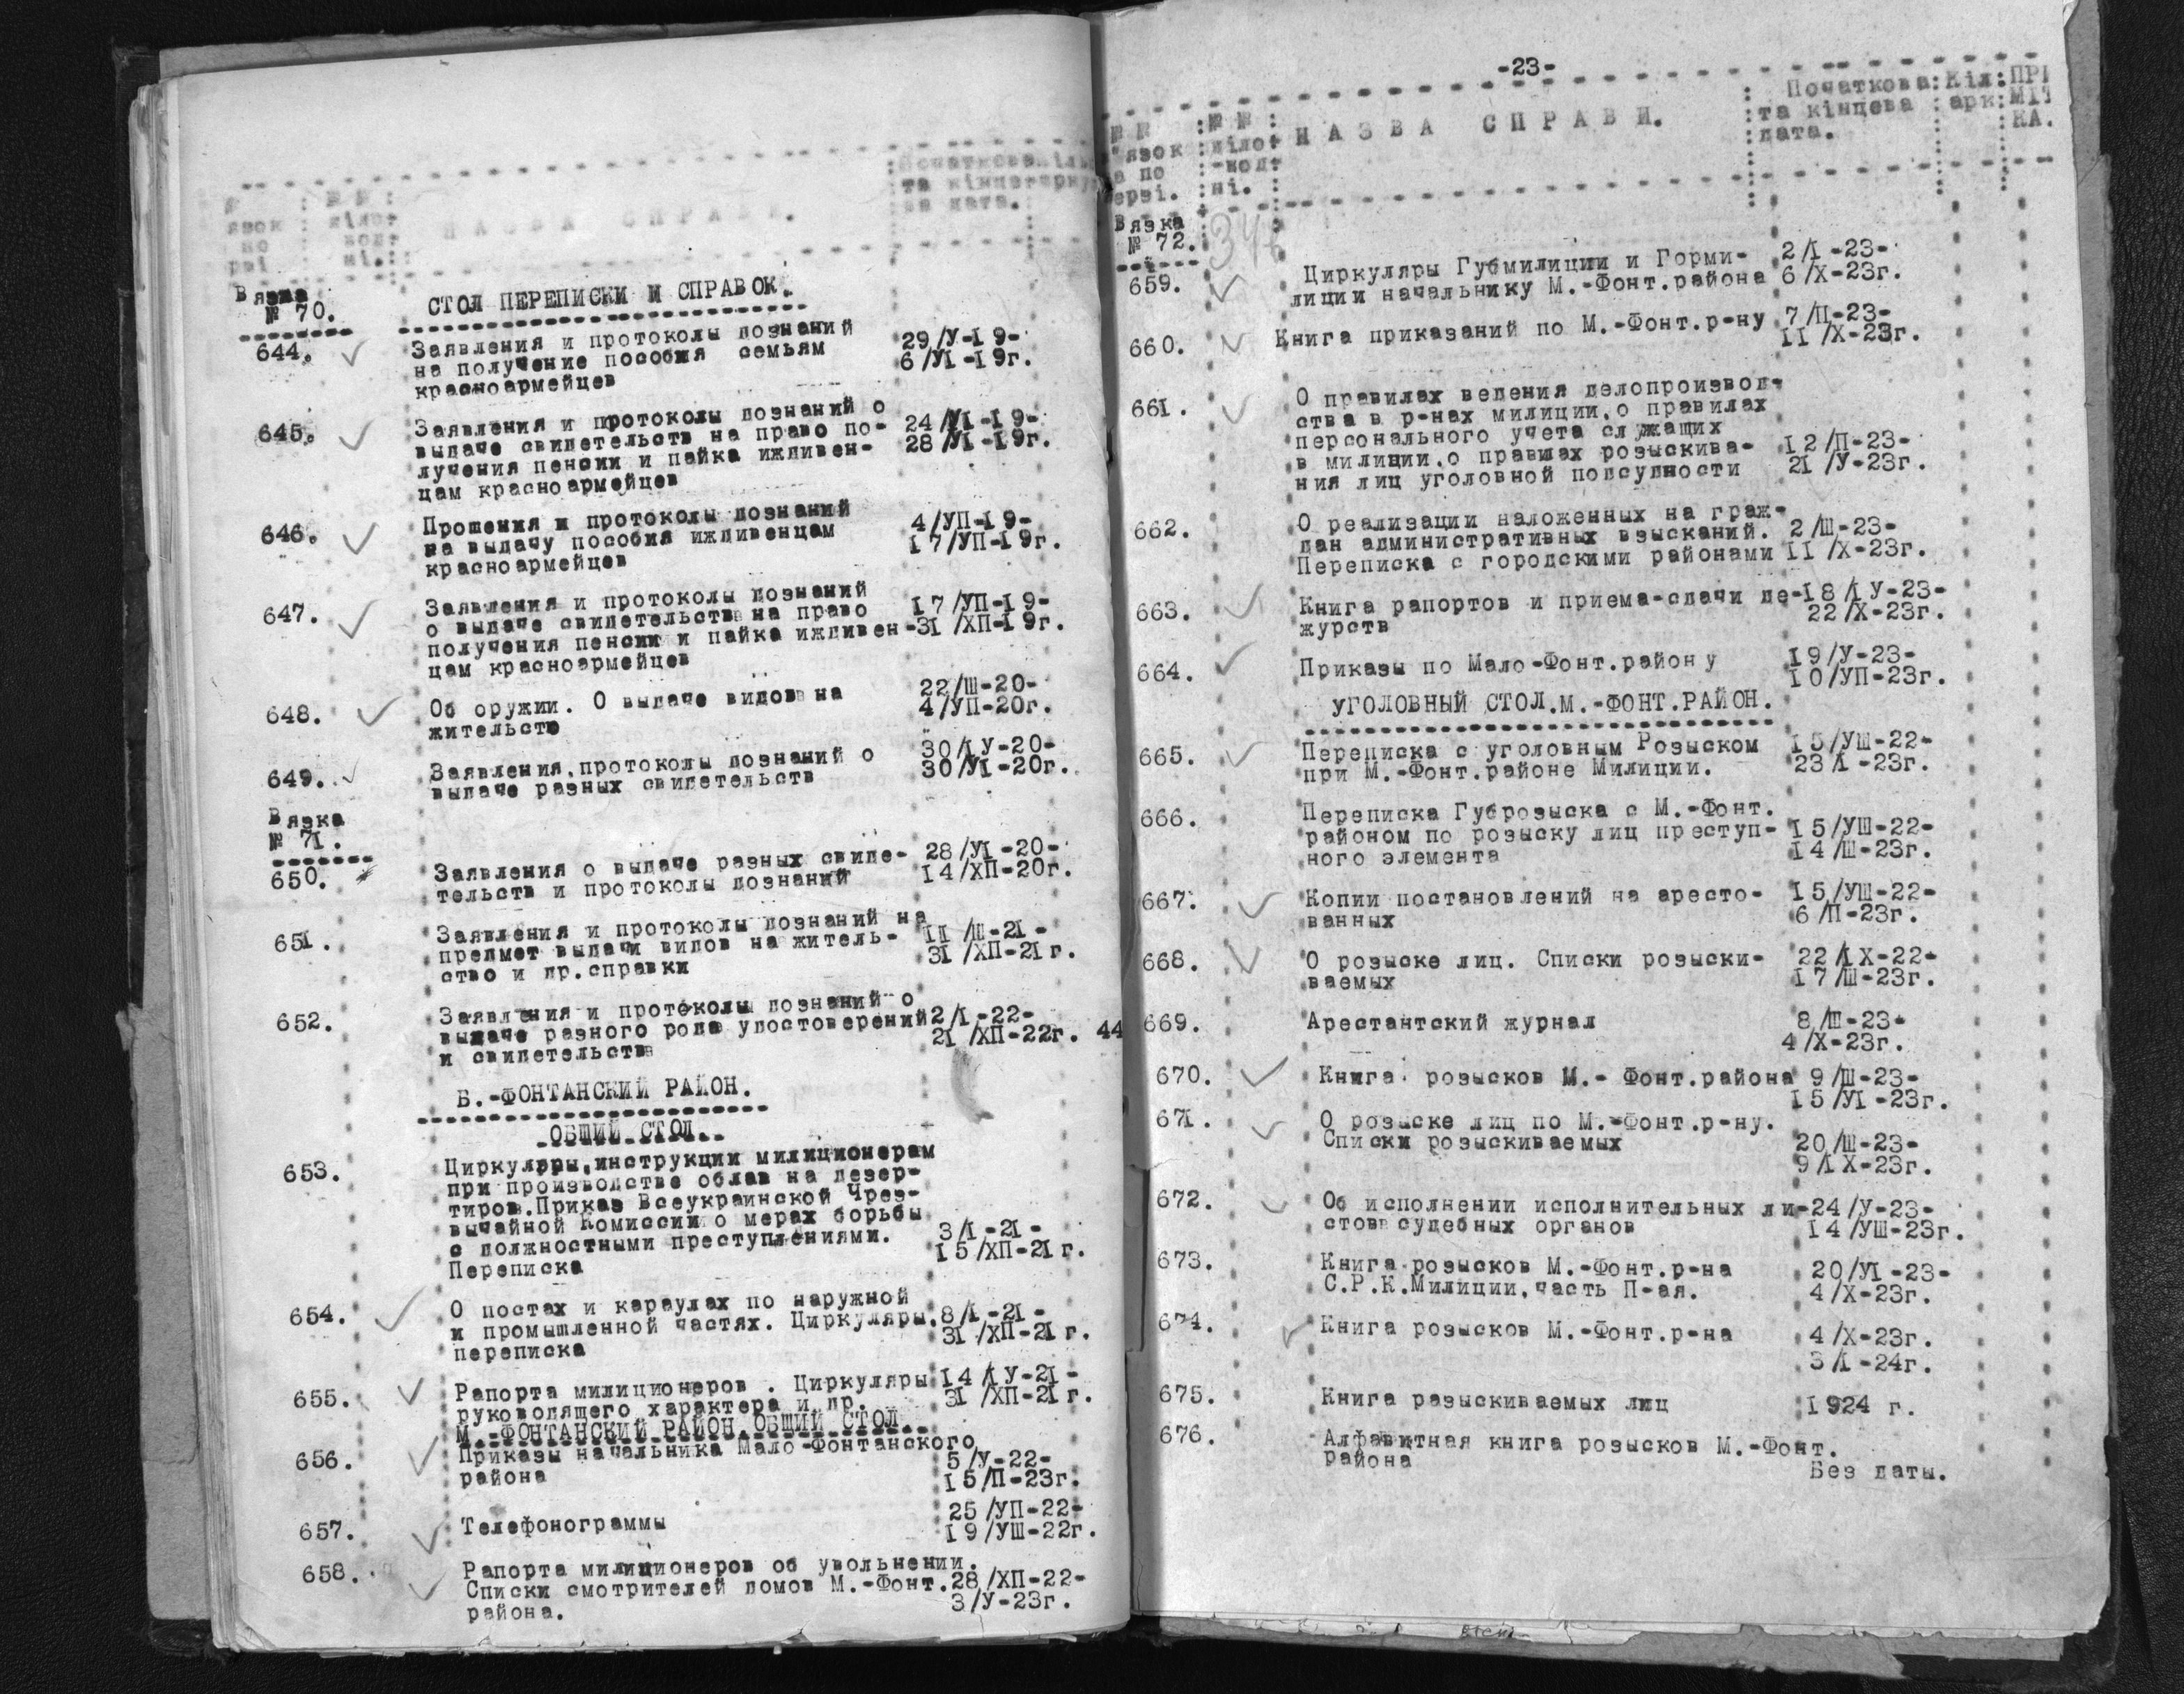 Початкова
та кінцев
ва дата.
№ №
діло-
вод-
ні.
язок
по
рві
НАЗВА СПРАВИ.
Вязка
№ 70.
СТОЛ ПЕРЕПИСКИ И СПРАВОК.
644. Заявления и протоколы дознаний
на получение пособия семьям
красноармейцев
29/У-19-
6/У1-19г.
645. Заявления и протоколы дознаний о
выдаче свидетельств на право по-
лучения пенсии и пайка иждивен-
цам красноармейцев
24/У1-19-
28/У1-19г.
646. Прошения и протоколы дознаний
на выдачу пособия иждивенцам
красноармейцев
4/УП-19-
17/УП-19г.
647. Заявления и протоколы дознаний
о выдаче свидетельства на право
получения пенсии и пайка иждивен-
цам красноармейцев
17/УП-19-
31/ХП-19г.
648. Об оружии. О выдаче видов на
жительств
22/Ш-20-
4/УП-20г.
649. Заявления,протоколы дознаний о
выдаче разных свидетельств
30/1У-20-
30/У1-20г.
Вязка
№ 71.
650. Заявления о выдаче разных свиде-
тельств и протоколы дознаний
28/У1-20-
14/ХП-20г.
651. Заявления и протоколы дознаний на
предмет выдачи видов на житель-
ство и др.справки
11/Ш-21-
31/ХП-21г.
652. Заявления и протоколы дознаний о
выдаче разного рода удостоверений
и свидетельства
2/1-22-
21/ХП-22г. 44
Б.-ФОНТАНСКИЙ РАЙОН.
ОБЩИЙ СТОЛ.
653. Циркуляры,инструкции милиционерам
при производстве облав на дезер-
тиров.Приказ Всеукраинской Чрез-
вычайной Комиссии о мерах борьбы
с должностными преступлениями.
Переписка
3/1-21-
15/ХП-21г.
654. О постах и караулах по наружной
и промышленной частях. Циркуляры,
переписка
8/1-21-
31/ХП-21г.
655. Рапорта милиционеров . Циркуляры
руководящего характера и др.
14/1У-21-
31/ХП-21г.
М.-ФОНТАНСКИЙ РАЙОН.ОБЩИЙ СТОЛ.
656. Приказы начальника Мало-Фонтанского
района
5/У-22-
15/П-23г.
657. Телефонограммы
25/УП-22-
19/УШ-22г.
658. Рапорта милиционеров об увольнении.
Списки смотрителей домов М.-Фонт.
района.
28/ХП-22-
3/У-23г.
-23-
№ №
язок
а по
ерві.
№ №
діло-
-вод-
ні.
НАЗВА СПРАВИ.
Початкова
та кінцева
дата.
Кіл:
арк:
ПРИ
МІТ
КА.
Вязка
№ 72.
346
659. Циркуляры Губмилиции и Горми-
лиции начальнику М.-Фонт.района
2/1-23-
6/Х-23г.
660. Книга приказаний по М.-Фонт.р-ну
7/П-23-
11/Х-23г.
661. О правилах ведения делопроизвод-
ства в р-нах милиции,о правилах
персонального учета служащих
в милиции,о правилах розыскива-
ния лиц уголовной подсудности
12/П-23-
21/У-23г.
662. О реализации наложенных на граж-
дан административных взысканий.
Переписка с городскими районами
2/Ш-23-
11/Х-23г.
663. Книга рапортов и приема-сдачи де-
журств
18/1У-23-
22/Х-23г.
664. Приказы по Мало-Фонт.району
19/У-23-
10/УП-23г.
УГОЛОВНЫЙ СТОЛ.М.-ФОНТ.РАЙОН.
665. Переписка с уголовным Розыском
при М.-Фонт.районе Милиции.
15/УШ-22-
23/1-23г.
666. Переписка Губрозыска с М.-Фонт.
районом по розыску лиц преступ-
ного элемента
15/УШ-22-
14/Ш-23г.
667. Копии постановлений на аресто-
ванных
15/УШ-22-
6/П-23г.
668. О розыске лиц. Списки розыски-
ваемых
22/1Х-22-
17/Ш-23г.
669. Арестантский журнал
8/Ш-23-
4/Х-23г.
670. Книга розысков М.- Фонт.района
9/Ш-23-
15/У1-23г.
671. О розыске лиц по М.-Фонт.р-ну.
Списки розыскиваемых
20/Ш-23-
9/1Х-23г.
672. Об исполнении исполнительных ли-
стов судебных органов
24/У-23-
14/УШ-23г.
673. Книга розысков М.-Фонт.р-на
С.Р.К.Милиции,часть П-ая.
20/У1-23-
4/Х-23г.
674. Книга розысков М.-Фонт.р-на
4/Х-23г.
3/1-24г.
675. Книга разыскиваемых лиц
1924 г.
676. Алфавитная книга розысков М.-Фонт.
района
Без даты.